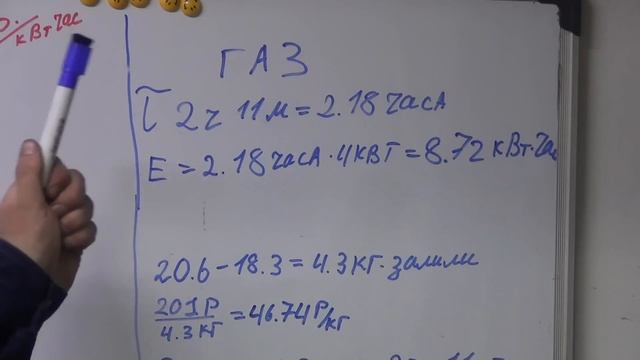 кВт час
ГАЗ
τ 2ч 11м = 2.18 часа
E = 2.18 часа · 4кВт = 8.72 кВт·час
20.6 - 18.3 = 4.3 кг. залили
201Р
4.3 кг
= 46.74 Р/кг